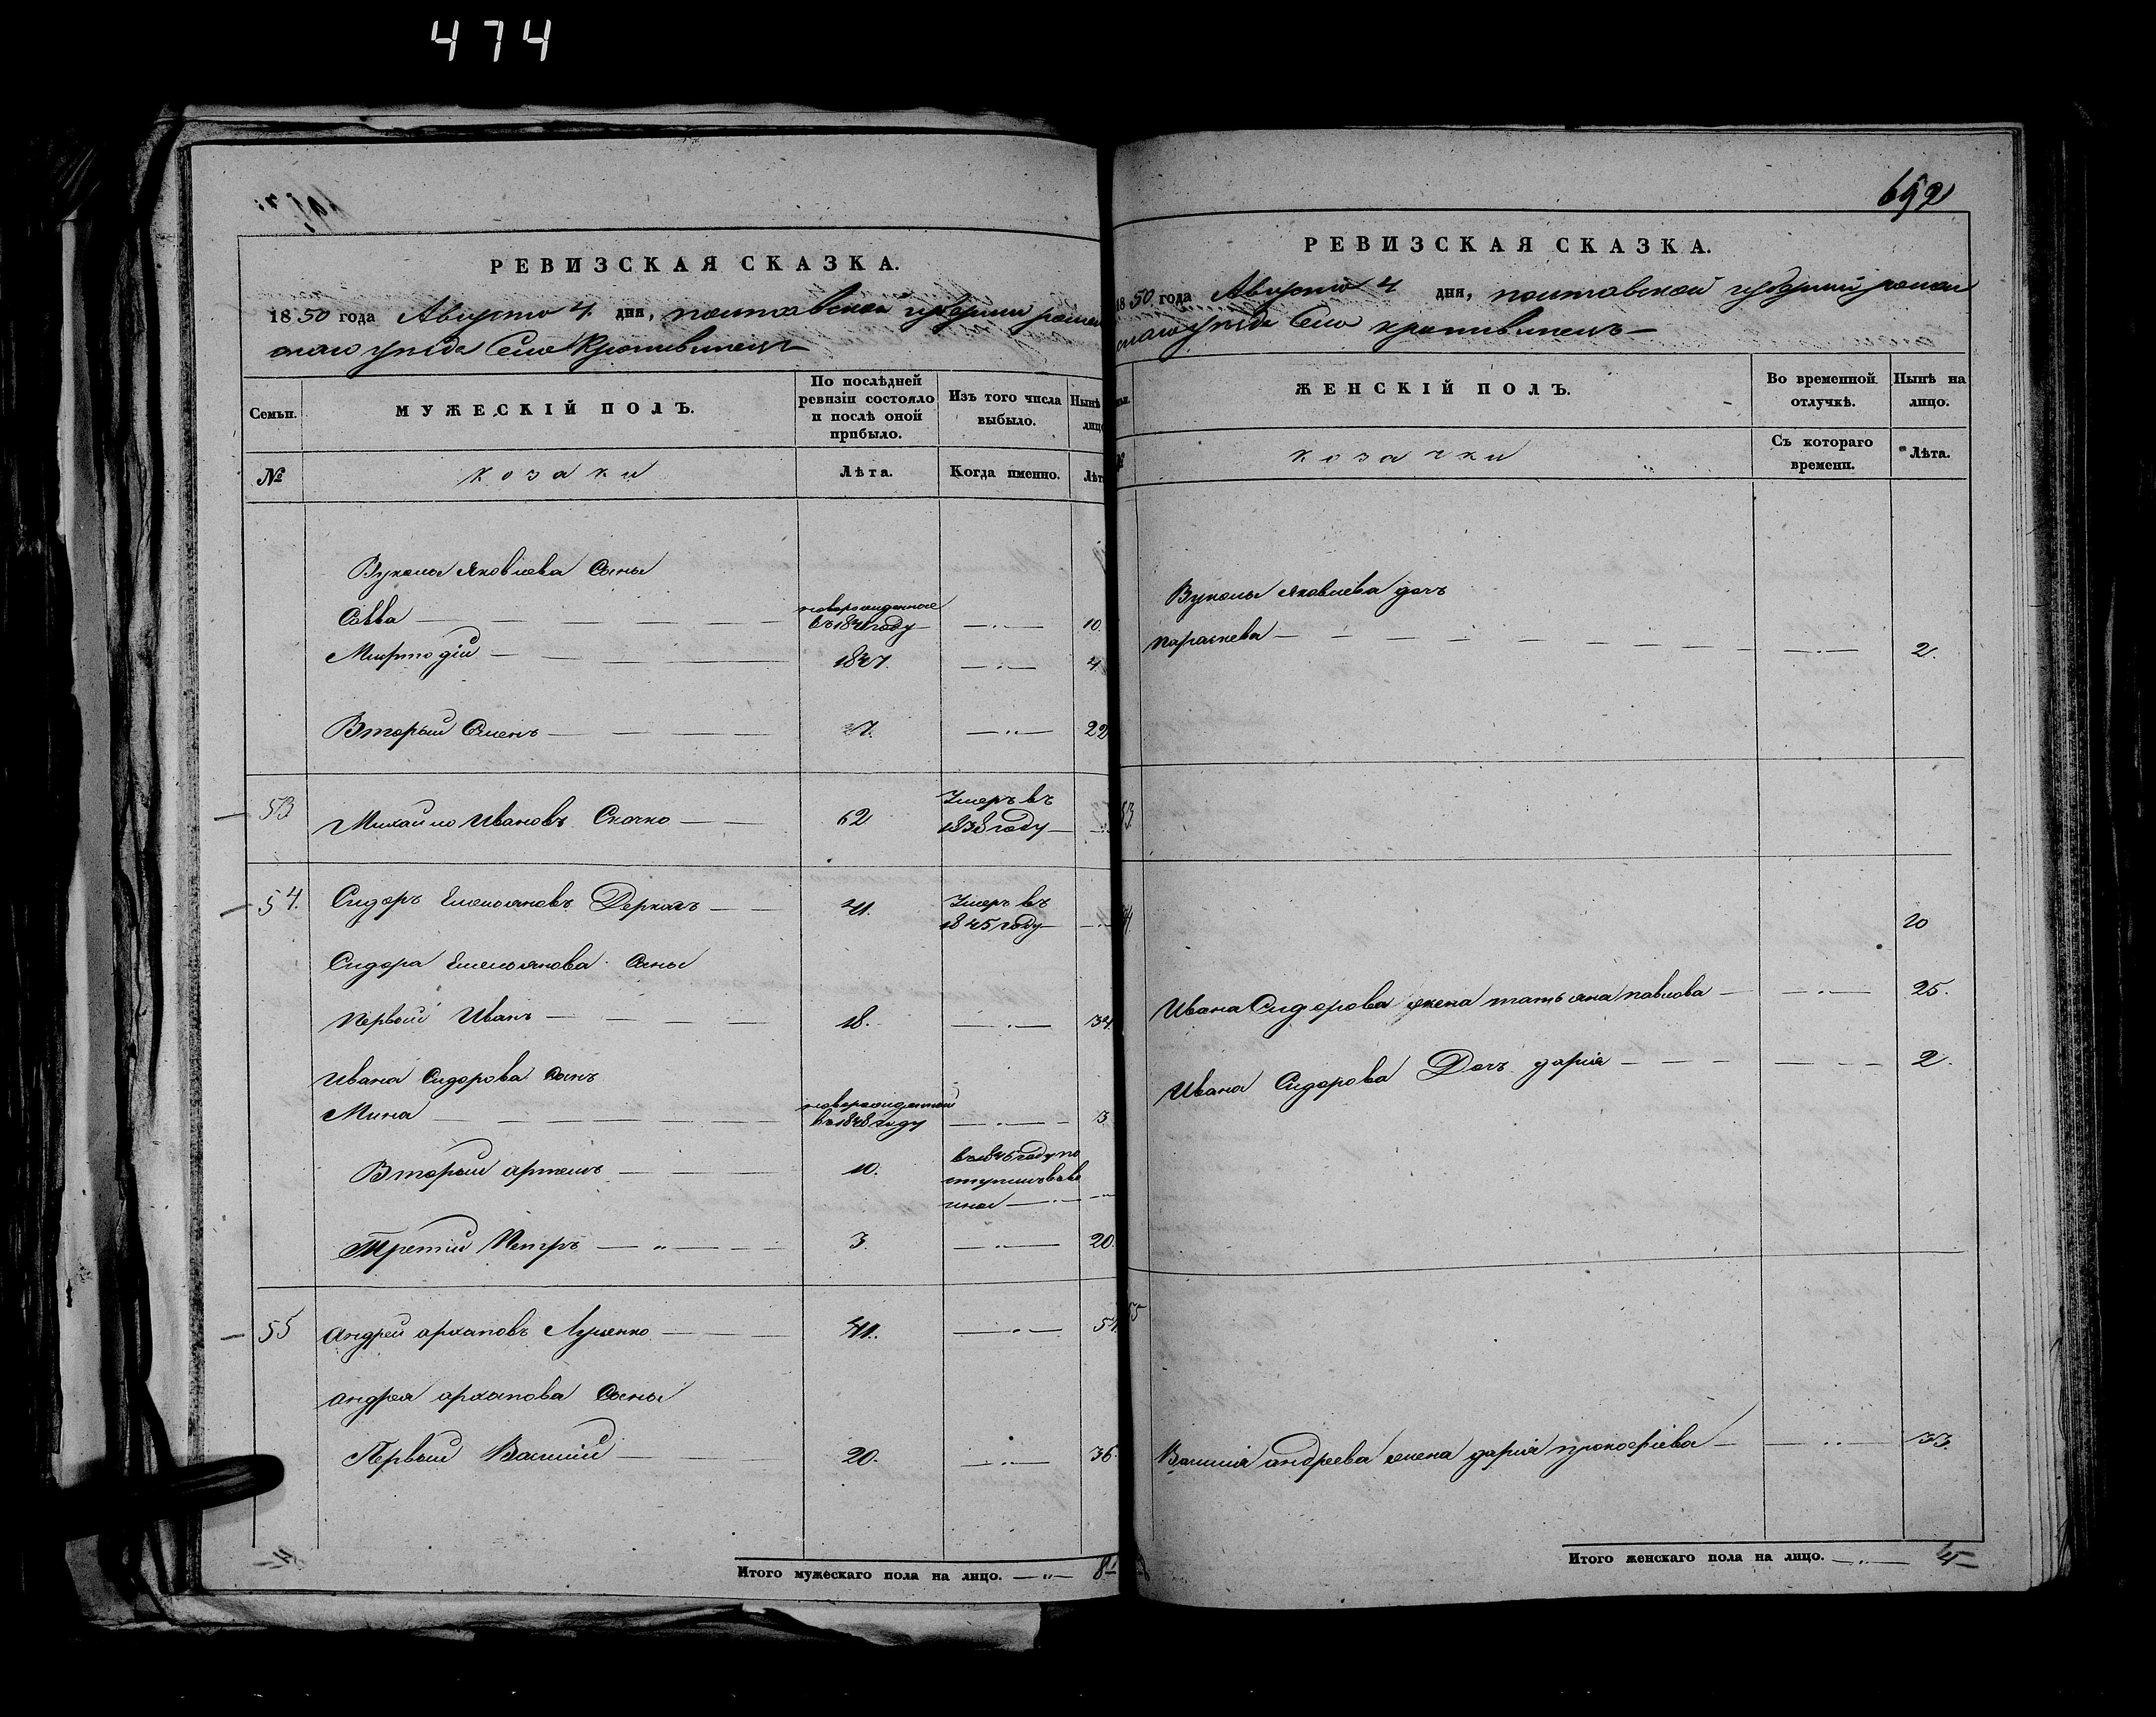 474
РЕВИЗСКАЯ СКАЗКА.
1850 года Августа 4 дня, полтавской губернии ромен
скаго уезда Село Кропивинецъ
Семьи.
МУЖЕСКІЙ ПОЛЪ.
По послѣдней ревизіи состояло и послѣ оной прибыло.
Изъ того числа выбыло.
Нынѣ
лицо
№
козаки
Лѣта.
Когда именно.
Лѣт
Вукола Яковлева Сыны
Савва новорожденные въ 1841 году 10.
Мифтодій 1847. 4
Вторый Семенъ 7. 22
53 Михайло Ивановъ Скочко 62 Умеръ въ 1838 году
54. Сидоръ Емельяновъ Деркачъ 41. Умеръ въ 1845 году
Сидора Емельянова Сыны
Первый Иванъ 18. 34
Ивана Сидорова Сынъ
Мина новорожденный въ 1848 году 3
Вторый артемъ 10. въ 1846 году по
Третій Петръ 3. 20.
55 Андрей архиповъ Луценко 41. 57
Андрея архипова Сыны
Первый Василій 20. 36
Итого мужескаго пола на лицо. 8
692
РЕВИЗСКАЯ СКАЗКА.
1850 года Августа 4 дня, полтавской губерніи ромен
скаго уезда Село кропивинецъ
ЖЕНСКІЙ ПОЛЪ.
Во временной отлучкѣ.
Нынѣ на лицо.
козачки
Съ котораго времени.
Лѣта.
Вукола Яковлева дочь
параскева 2.
53
20
Ивана Сидорова жена татьяна павлова 25.
Ивана Сидорова Дочь дарія 2.
55
Василія андреева жена дарія прокофіева 33.
Итого женскаго пола на лицо. 4